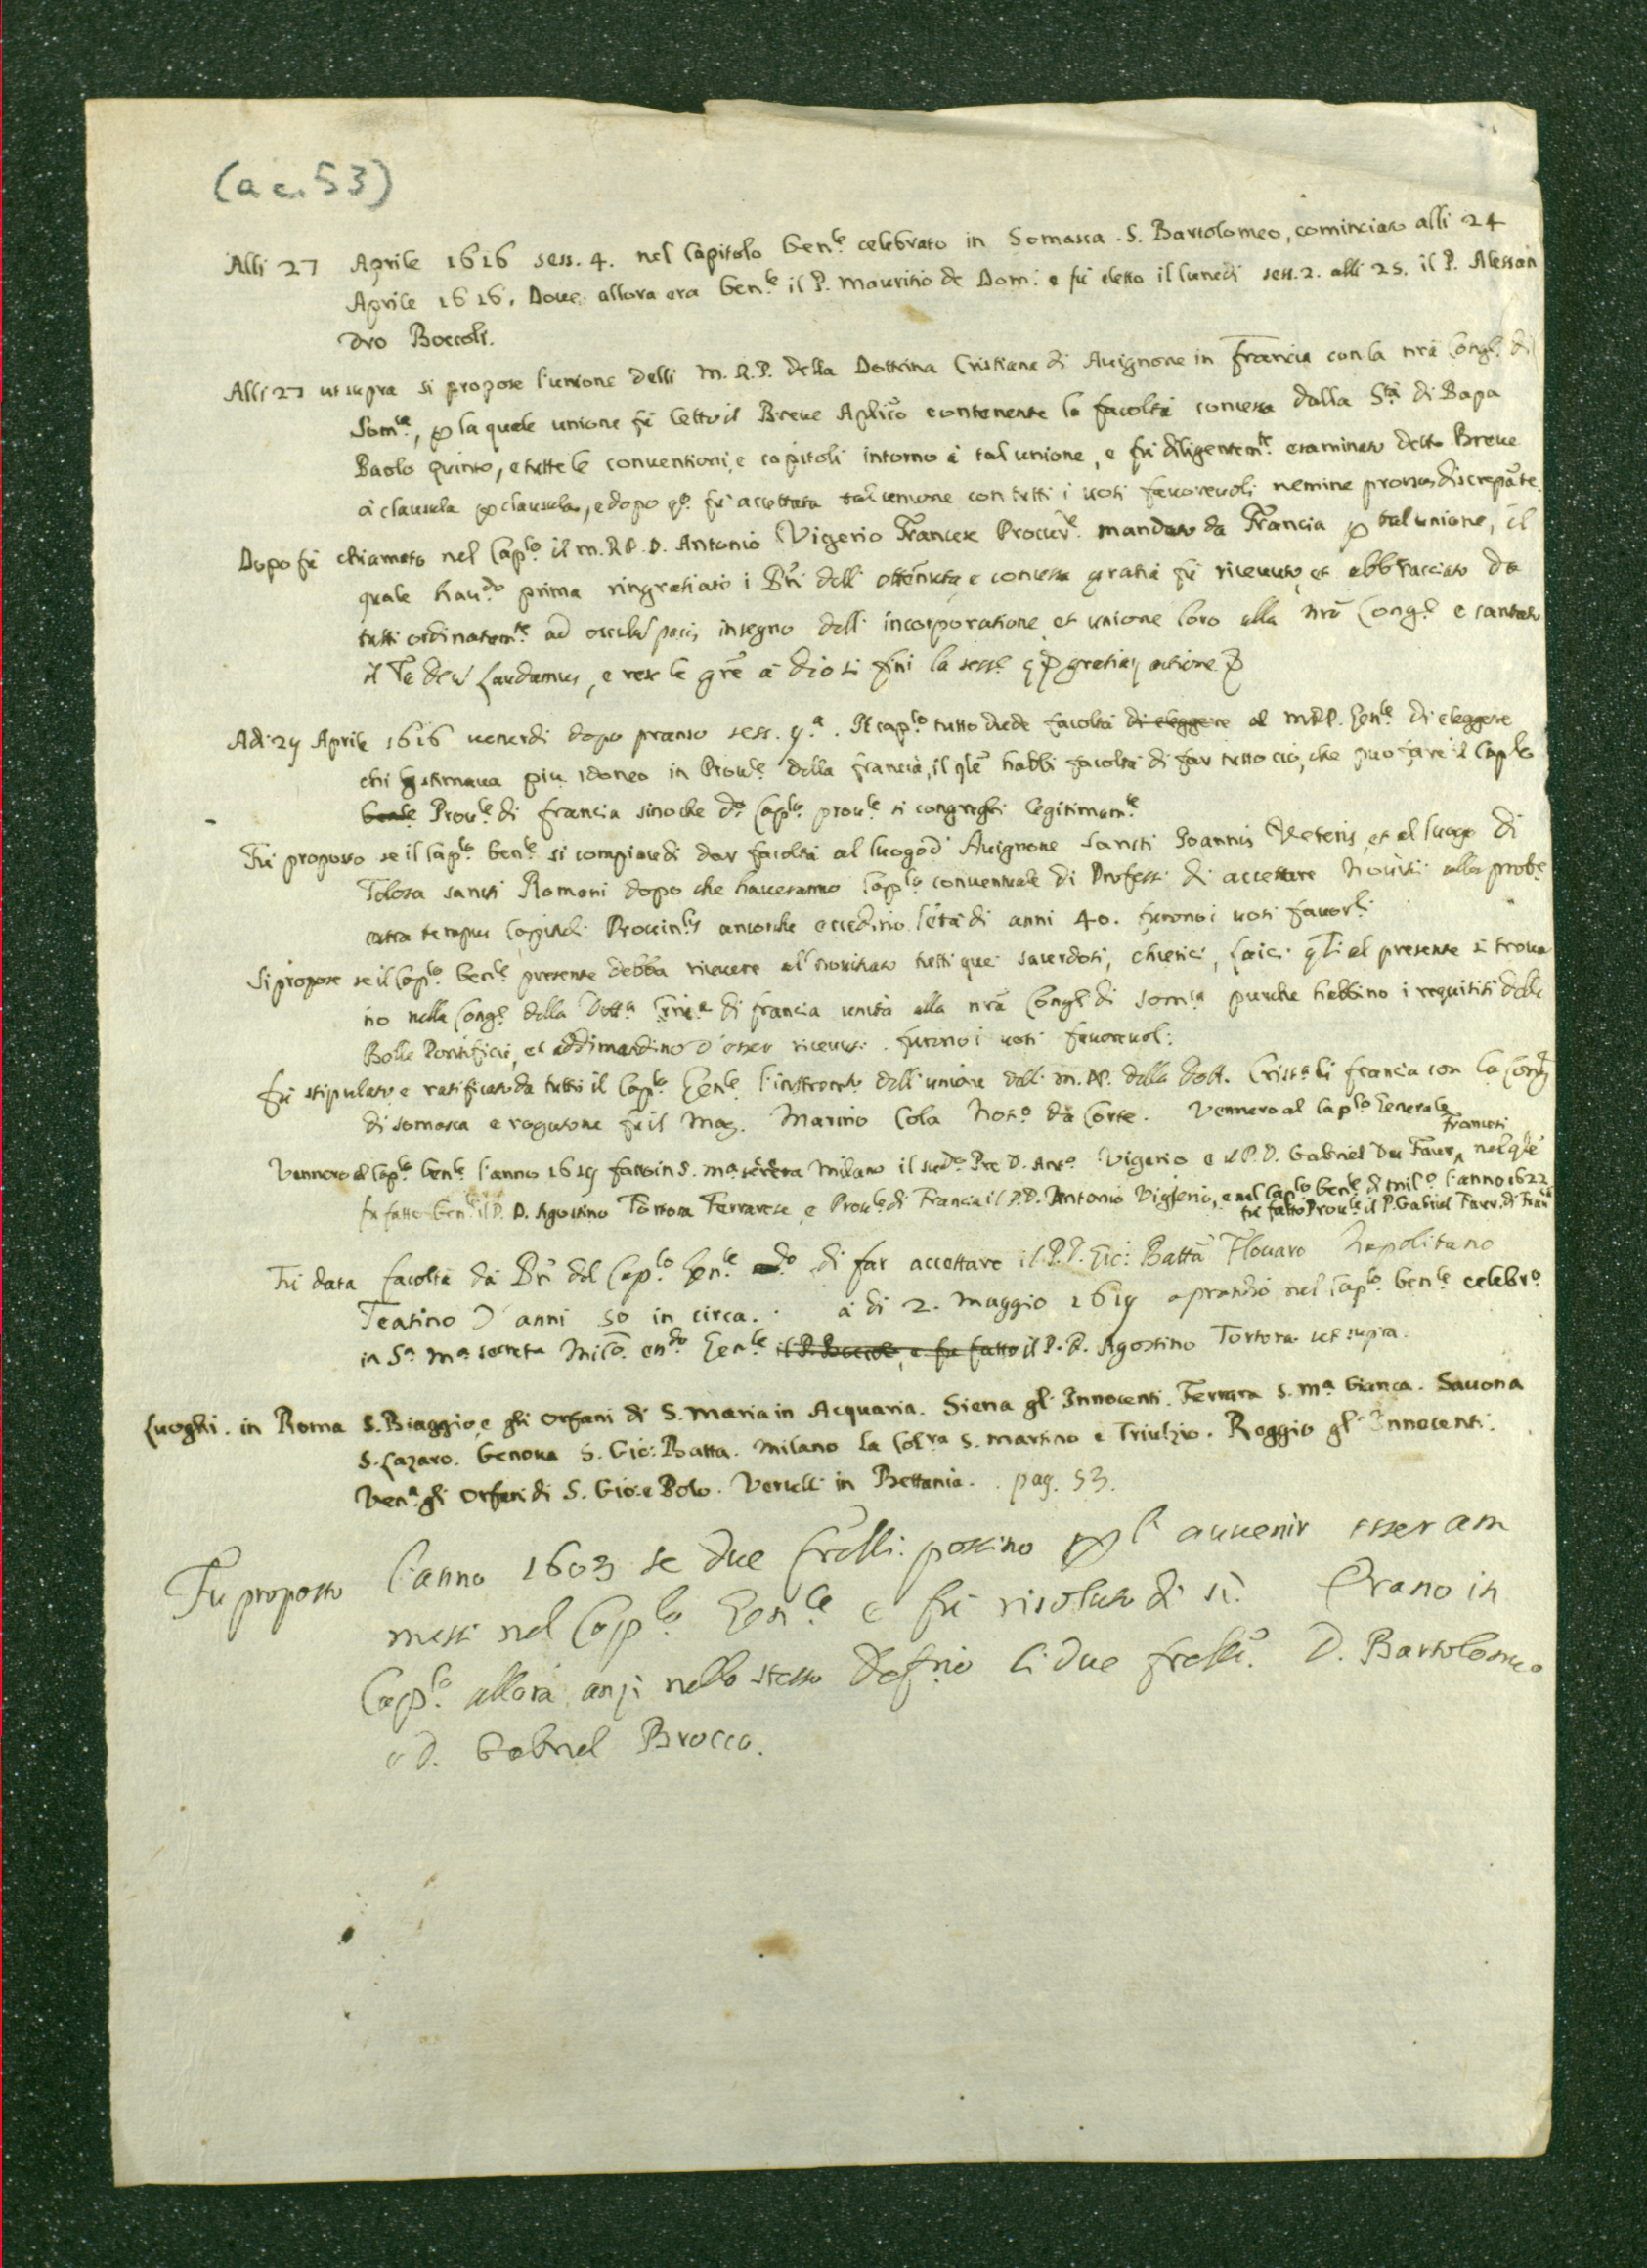 (a c. 53)
Alli 27 Aprile 1616 sess. 4. nel Capitolo Gen.le celebrato in Somasca . S. Bartolomeo, cominciato alli 24
Aprile 1616. Doue allora era Gen.le il P. Mauritio de Dom: e fù eletto il lunedi sess. 2. alli 25. il P. Alessan
dro Boccoli.
Alli 27 ut supra si propose l'unione delli M. R. P. della Dottrina Cristiana di Auignone in Francia con la nrã Cong.e di
Som.ca, p la quale unione fù letto il Breue Aplico contenente la facoltà concessa dalla S.tà di Papa
Paolo quinto, e tutte le conuentioni, e capitoli intorno à tal unione, e fù diligentem.te esaminato detto Breue
à clausula p clausula, e dopo q.o fù accettata tal unione con tutti i uoti fauoreuoli nemine prorsus discrepãte.
Dopo fù chiamato nel Cap.lo il m. R. P. D. Antonio Vigerio Francese Procur.e mandato da Francia p tal unione, il
quale hau.do prima ringratiato i Pri dell' ottenuta, e concessa gratia fù riceuuto, et abbracciato da
tutti ordinatam.te ad osculũ pacis in segno dell' incorporatione, et unione loro alla nrã Cong.e e cantato
il Te deũ Laudamus, e rese le grẽ à dio si finì la sess.e gratiarũ actione
Adi 29 Aprile 1616 uenerdi dopo pranso sess. 9.a . Il cap.lo tutto diede facoltà di eleggere al M.R.P. Gen.le di eleggere
chi stimaua piu idoneo in Prou.le della francia, il qle habbi facoltà di far tutto ciò, che puo fare il Cap.lo
Gen.le Prou.le di francia sinoche d.o Cap.lo prou.le si congreghi legitimam.te
Fù proposto se il Cap.lo Gen.le si compiaue di dar facoltà al luogo d' Auignone Sancti Joannis Veteris, et al luogo di
Tolosa sancti Romani dopo che haueranno Cap.lo conuentuale di Professi di accettare Nouitij alla prob.e
extra tempus Capituli Prouin.lis ancorche eccedino l'età di anni 40. furono i uoti fauor.li
Si propose se il Cap.lo Gen.le presente debba riceuere al nouitiato tutti que' sacerdoti, chierici, laici qli al presente si troua
no nella Cong.e della Dott.a Criã.a di francia unita alla nrã Cong.e di Som.ca purche habbino i requisiti delle
Bolle Pontificie, et addimandino d'esser riceuuti . furono i uoti fauoreuoli.
Fù stipulato e ratificato da tutto il Cap.lo Gen.le l'instromento dell' unione delli m. RR. della Dott. Crist.a di francia con la Cong.e
di Somasca e rogatone fù il Mag. Marino Cola Not.o da Corte. Vennero al Cap.lo Generale
Vennero al Cap.lo Gen.le l'anno 1619 fatto in S. M.a secreta Milano il sud.o Pre D. Ant.o Vigerio e il P. D. Gabriel Du Faur francesi nel qle
fu fatto Gen.le il P. D. Agostino Tortora Ferrarese, e Prou.le di Francia il P. D. Antonio Vigerio, e nel Cap.lo Gen.le di Mil.o l'anno 1622
fù fatto Prou.le il P. Gabriel Faur. di Fran.a
Fù data facoltà da' Pri del Cap.lo Gen.le di far accettare il P. D. Gio: Batta Flouaro Napolitano
Teatino d'anni 50 in circa. à di 2. Maggio 1619 a prandio nel Cap.lo Gen.le celebr.o
in S.a M.a secreta Mil.o en.do Gen.le il P. Boccoli, e fu fatto il P. D. Agostino Tortora ut supra.
Luoghi. in Roma S. Biaggio, e gli Orfani di S. Maria in Acquaria. Siena gl' Innocenti. Ferrara S. M.a bianca. Sauona
S. Lazaro. Genoua S. Gio: Batta. Milano la Col.ra S. Martino e Triulzio. Reggio gl' Innocenti.
Ven.a gli Orfani di S. Gio: e Polo. Vercelli in Bettania. . pag. 53.
Fu proposto l'anno 1603 se due frelli possino p l' auuenir esser am
messi nel Cap.lo Gen.le e fù risoluto di sì. Erano in
Cap.lo allora anzi nello stesso Defrio li due frelli D. Bartolomeo
e D. Gabriel Brocco.